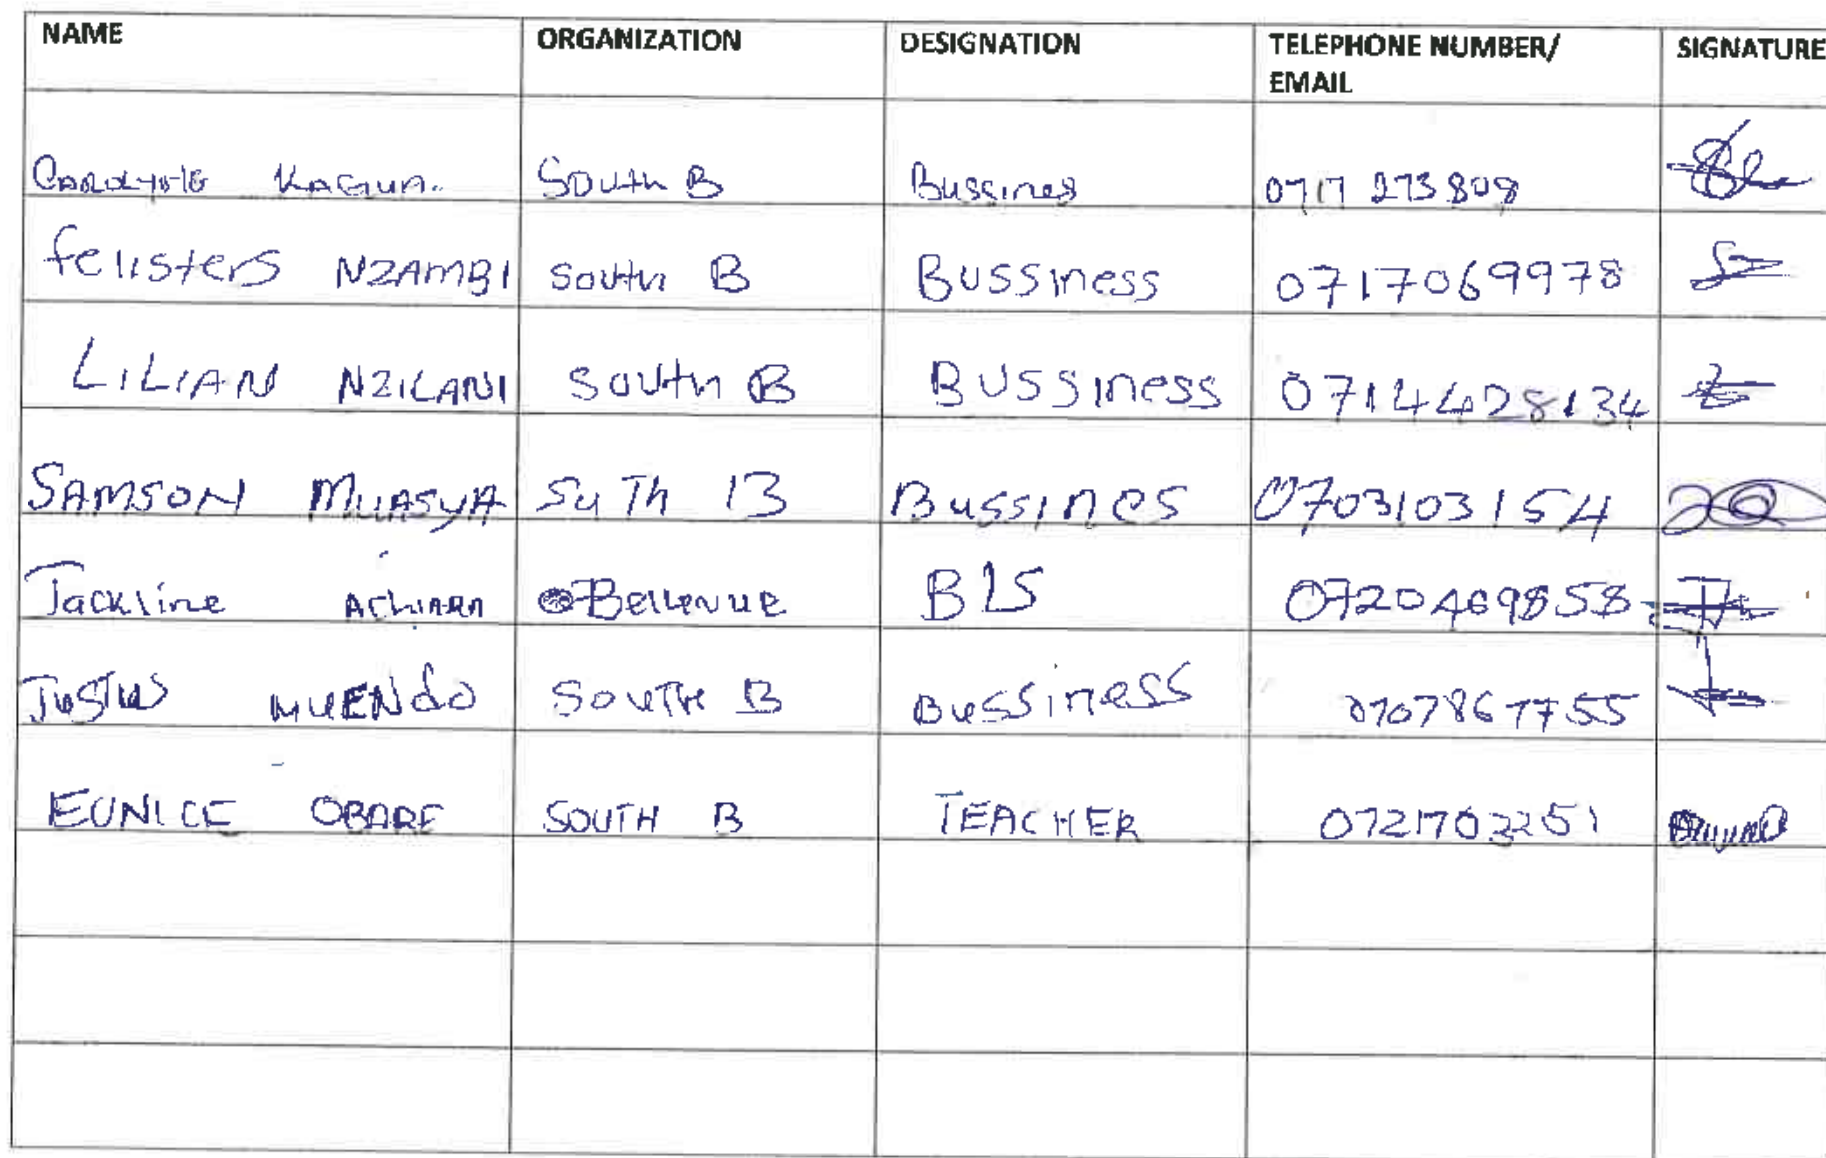 NAME ORGANIZATION DESIGNATION TELEPHONE NUMBER/ EMAIL SIGNATURE
CAROLYNE KAGUA. South B Bussines 0717 273 808
felisters NZAMBI south B Bussiness 0717069978
LILIAN NZILANI South B BUSSIness 0714428134
SAMSON MUASYA SuTh B Bussines 0703103154
Jackline Bellevue B2S 0720469858
Justus MUENdo South B Bussiness 0707867755
EUNICE OBARE SOUTH B TEACHER 0721703251